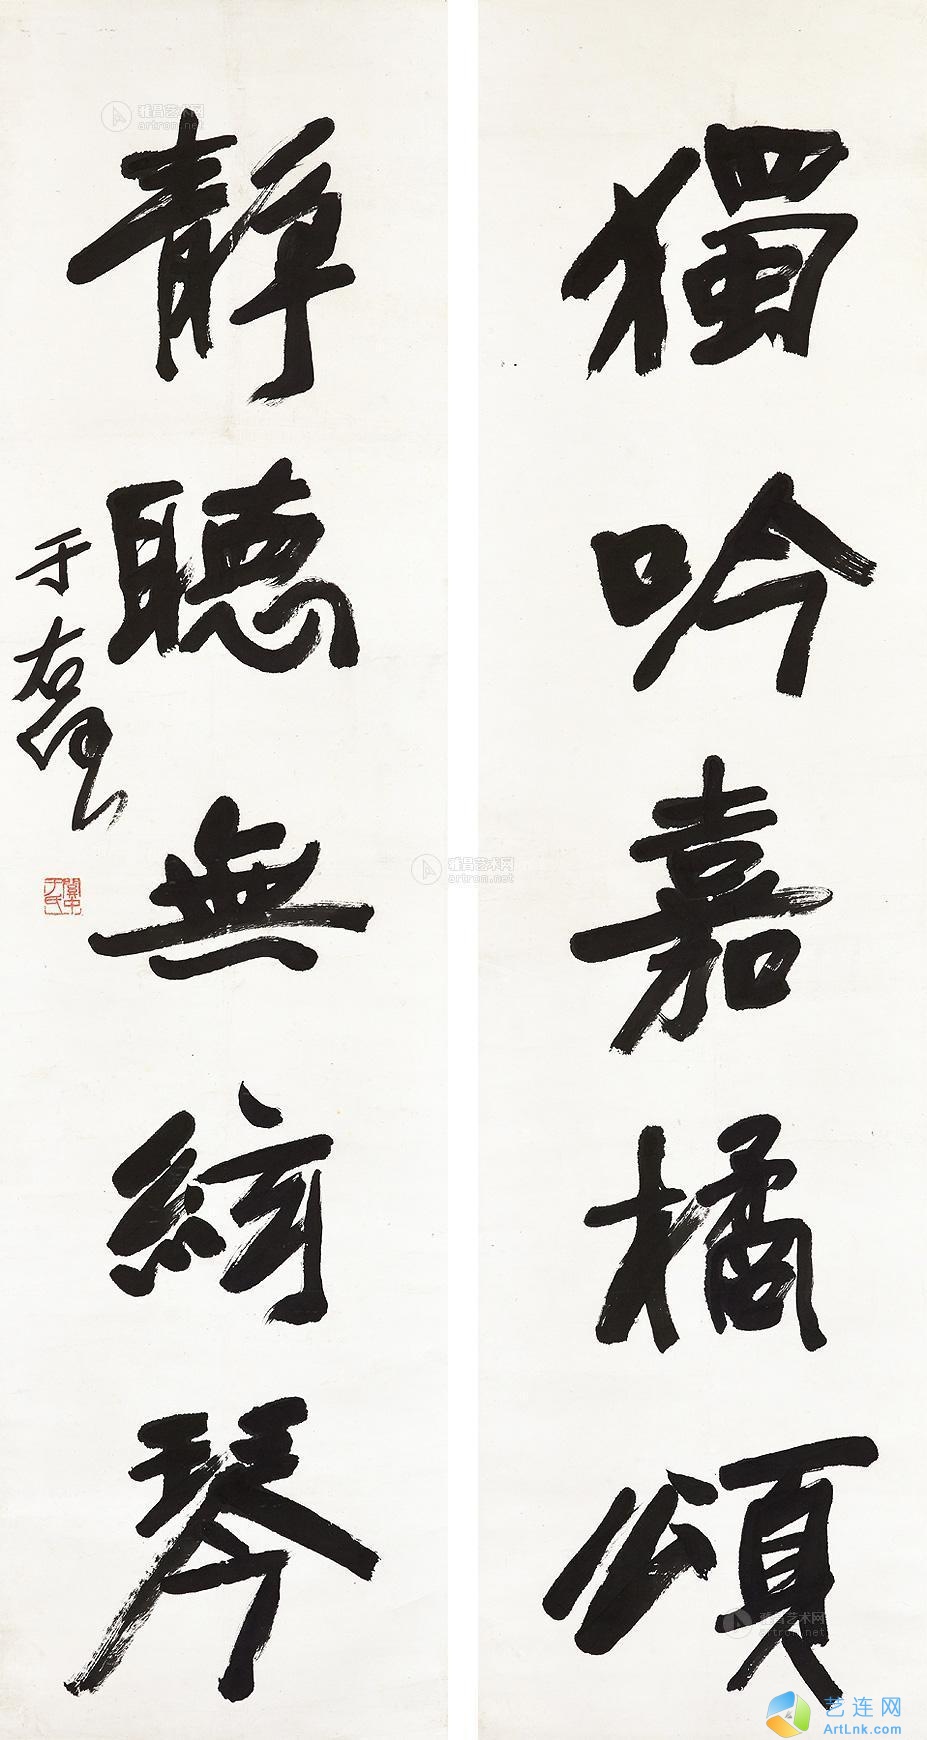 獨吟嘉橘頌
靜聽無絃琴
于右任
關中于氏
雅昌艺术网
artron.net
雅昌艺术网
artron.net
雅昌艺术网
artron.net
艺连网
ArtLnk.com